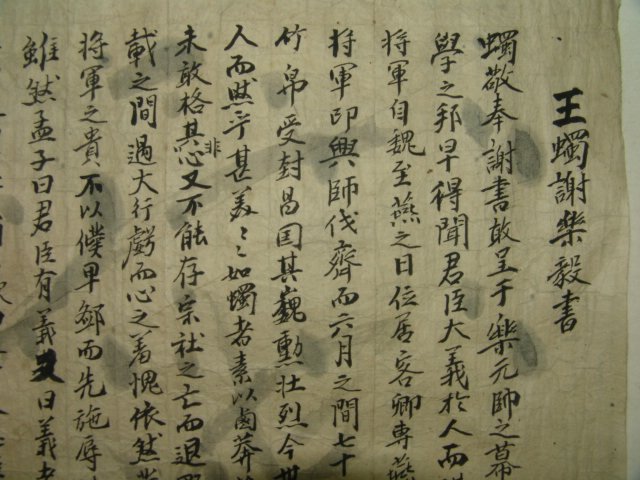 王蠋謝樂毅書
蠋敬奉謝書敢呈于樂元帥之幕
學之邦早得聞君臣大義於人而
將軍自魏至燕之日位居客卿專燕
將軍印興師伐齊而六月之間七十
竹帛受封昌国其巍勳壯烈今世
人而默乎甚美〻〻如蠋者素以鹵莽
未敢格其非心又不能存宗社之亡而退
載之間遇大行虧而心之羞愧依然
將軍之貴不以僕卑鄙而先施辱
雖然孟子曰君臣有義又曰義者